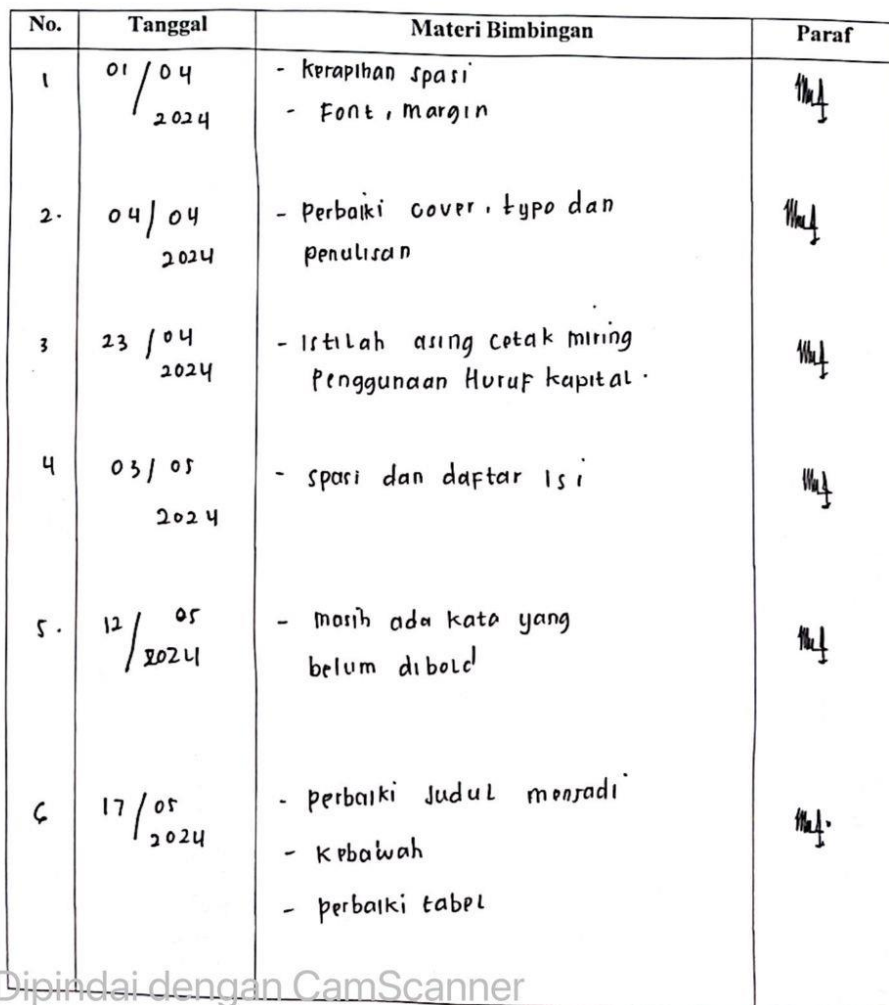 No. Tanggal Materi Bimbingan Paraf
1 01/04 - Kerapihan spasi
2024 - Font, margin
2. 04/04 - Perbaiki cover, typo dan
2024 penulisan
3 23/04 - Istilah asing cetak miring
2024 Penggunaan Huruf kapital.
4 03/05 - spasi dan daftar Isi
2024
5. 12/05 - masih ada kata yang
2024 belum dibold
6 17/05 - perbaiki Judul menjadi
2024 - Kebawah
- perbaiki tabel
Dipindai dengan CamScanner